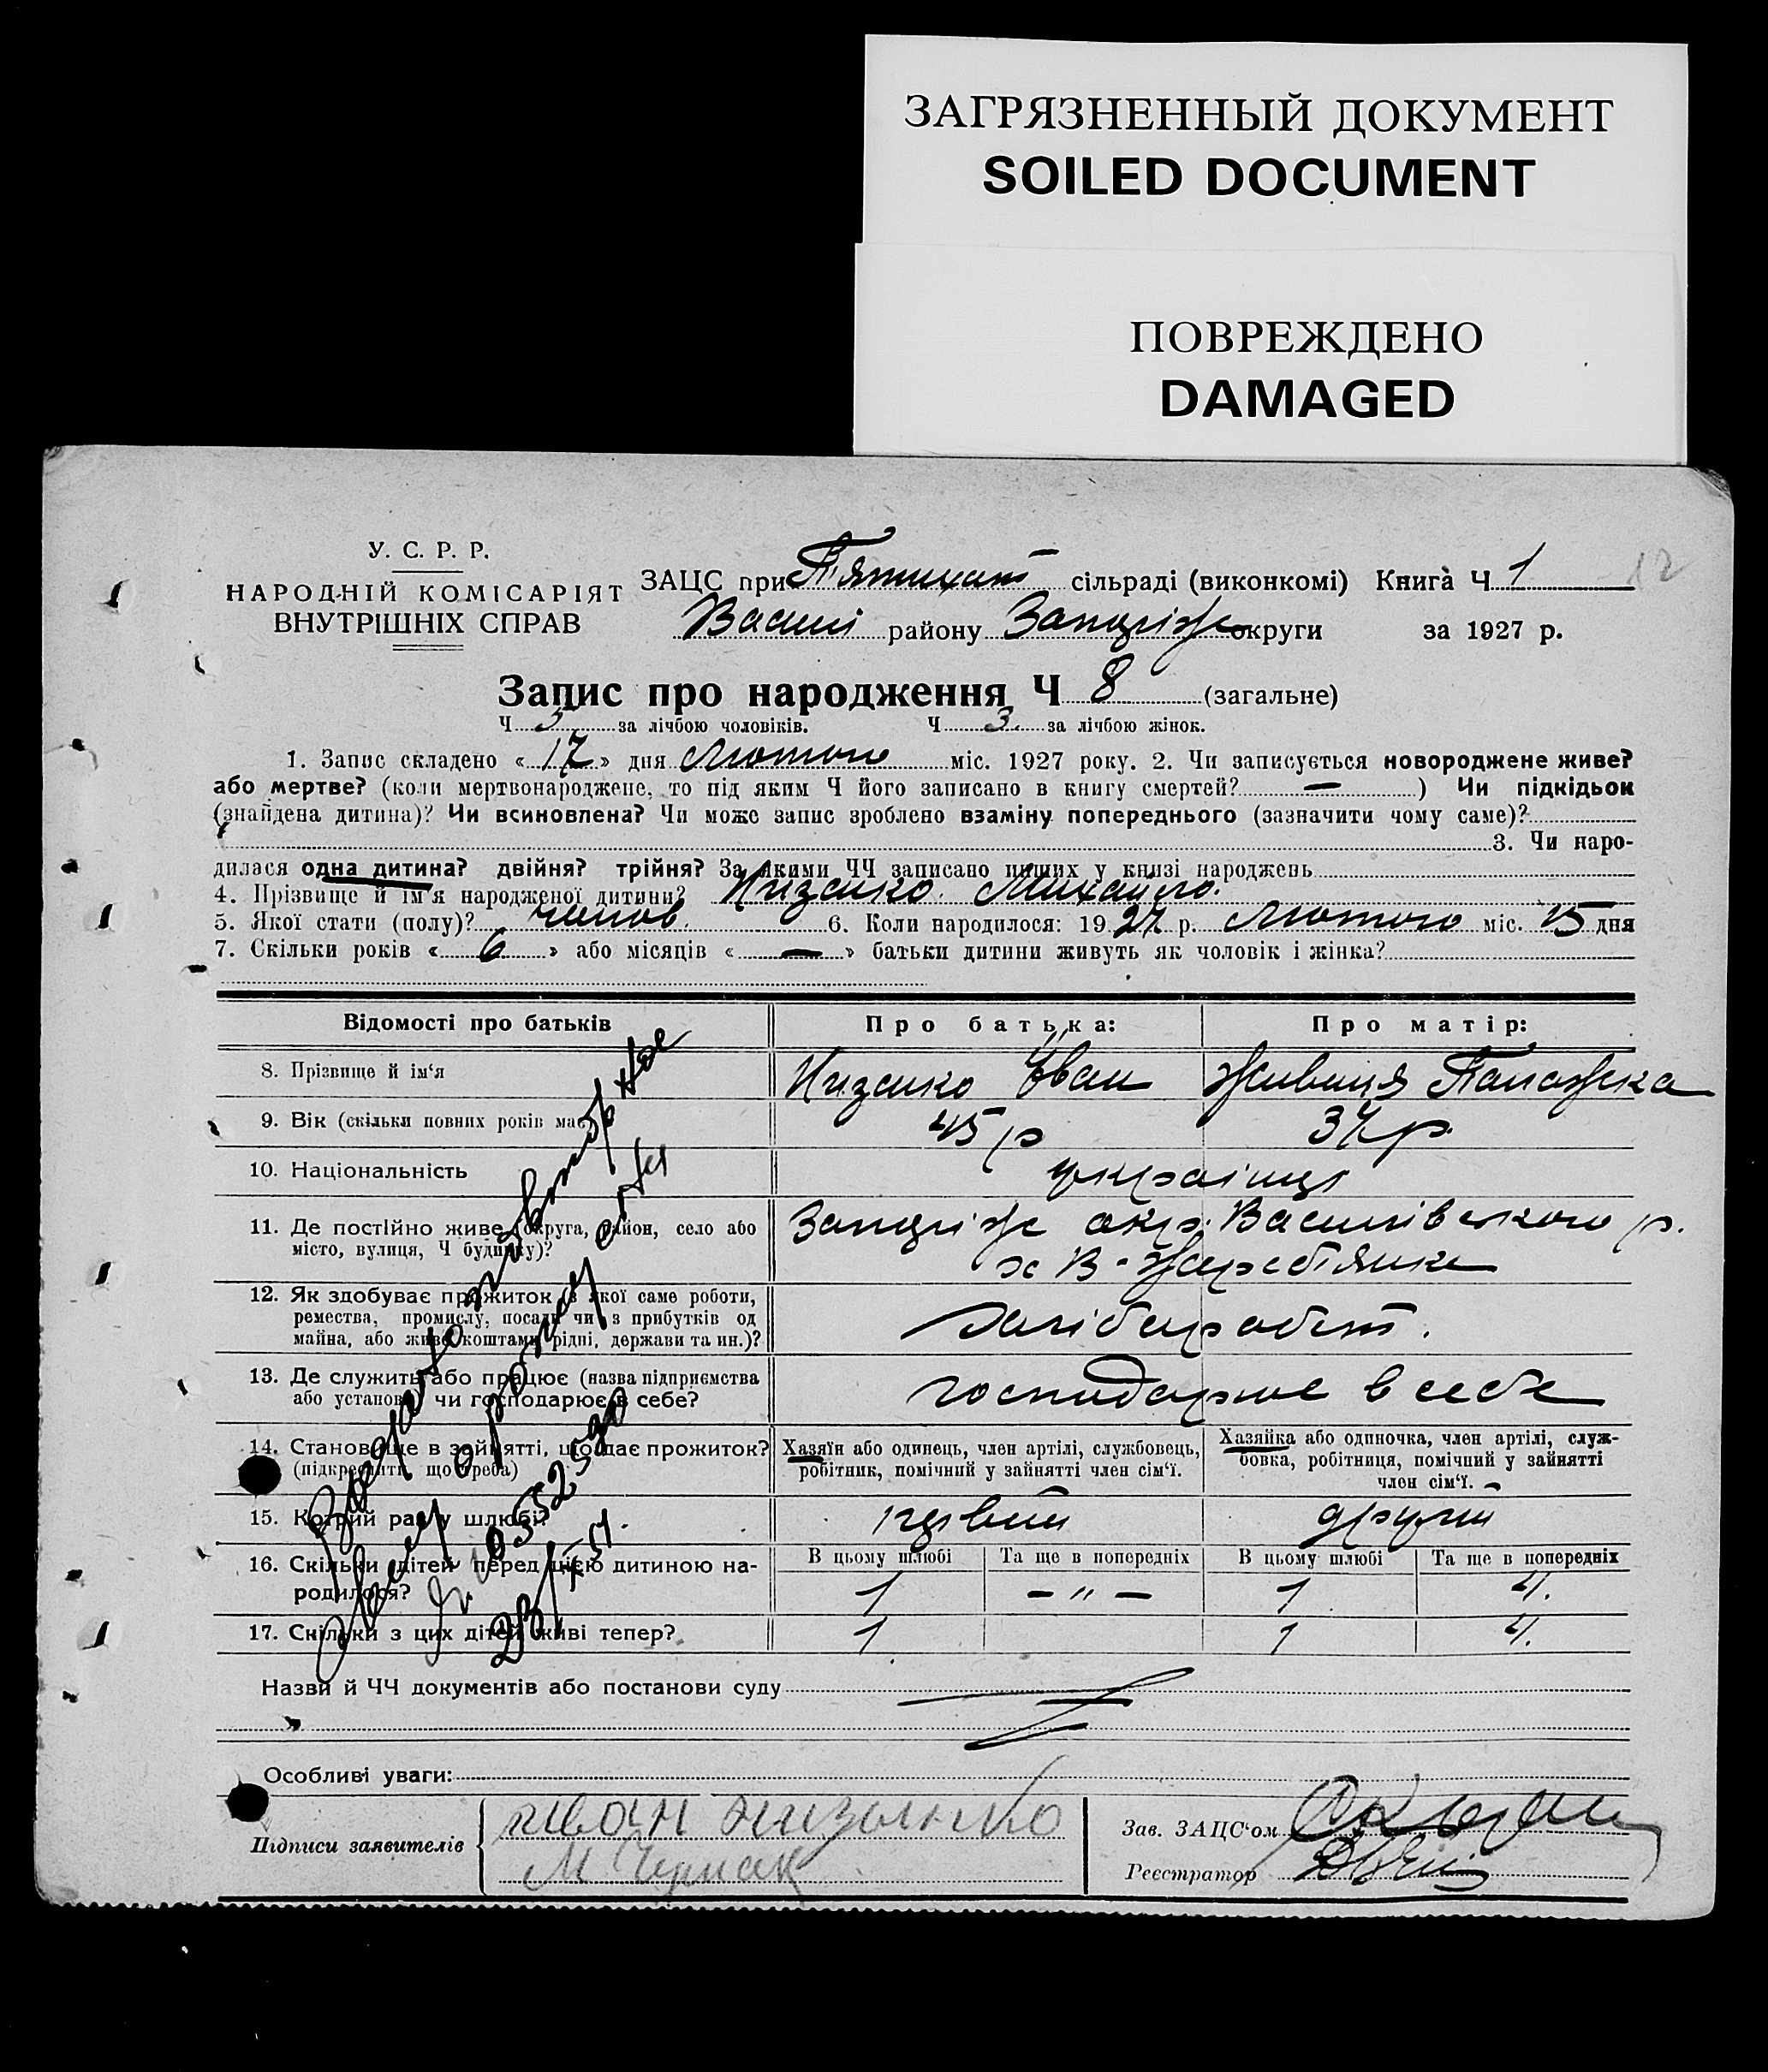 ЗАГРЯЗНЕННЫЙ ДОКУМЕНТ
SOILED DOCUMENT
ПОВРЕЖДЕНО
DAMAGED
У. С. Р. Р.
НАРОДНІЙ КОМІСАРІЯТ
ВНУТРІШНІХ СПРАВ
ЗАЦС при П'ятихат сільраді (виконкомі) Книга Ч 1 12
Васил району Запоріж округи за 1927 р.
Запис про народження Ч 8 (загальне)
Ч 5 за лічбою чоловіків. Ч 3 за лічбою жінок.
1. Запис складено «17» дня Лютого міс. 1927 року. 2. Чи записується новороджене живе?
або мертве? (коли мертвонароджене, то під яким Ч його записано в книгу смертей? — ) Чи підкідьок
(знайдена дитина)? Чи всиновлена? Чи може запис зроблено взаміну попереднього (зазначити чому саме)?
3. Чи наро-
дилася одна дитина? двійня? трійня? За якими ЧЧ записано инших у книзі народжень
4. Прізвище й ім'я народженої дитини? Низенко Михайло.
5. Якої стати (полу)? чолов. 6. Коли народилося: 1927 р. Лютого міс. 15 дня
7. Скільки років «6» або місяців «—» батьки дитини живуть як чоловік і жінка?
Відомості про батьків Про батька: Про матір:
8. Прізвище й ім'я Низенко Іван Живиця Палажка
9. Вік (скільки повних років має) 45 р 37 р.
10. Національність українці
11. Де постійно живе (округа, район, село або Запоріж окр. Василівського р.
місто, вулиця, Ч будинку)? х В-Жеребтянка
12. Як здобуває прожиток (з якої саме роботи,
ремества, промислу, посади чи з прибутків од
майна, або живе коштами рідні, держави та ин.)? хліборобст.
13. Де служить або працює (назва підприємства
або установи) чи господарює в себе? господарює в себе
14. Становище в зайнятті, що дає прожиток?
(підкреслити що треба)
Хазяїн або одинець, член артілі, службовець,
робітник, помічний у зайнятті член сім'ї.
Хазяйка або одиночка, член артілі, служ-
бовка, робітниця, помічний у зайнятті
член сім'ї.
15. Котрий раз у шлюбі? первий други
16. Скільки дітей перед цією дитиною на-
родилося?
В цьому шлюбі Та ще в попередніх В цьому шлюбі Та ще в попередніх
1 — „ — 1 4.
17. Скільки з цих дітей живі тепер? 1 1 4.
Назви й ЧЧ документів або постанови суду
Особливі уваги:
Підписи заявителів
иван низенко
М Чумак
Зав. ЗАЦС'ом
Реєстратор